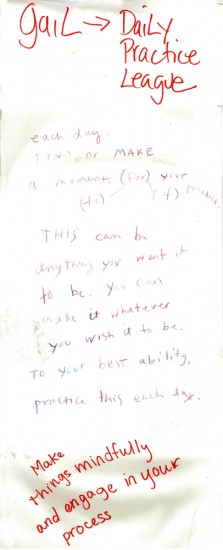 gaiL → DaiLy
Practice
League
each day:
FIND or MAKE
a moment, (for) your
(to) practice
THIS can be
anything you want it
to be. you can
make it whatever
you wish it to be.
TO your best ability,
practice this each day.
Make
things mindfully
and engage in your
process